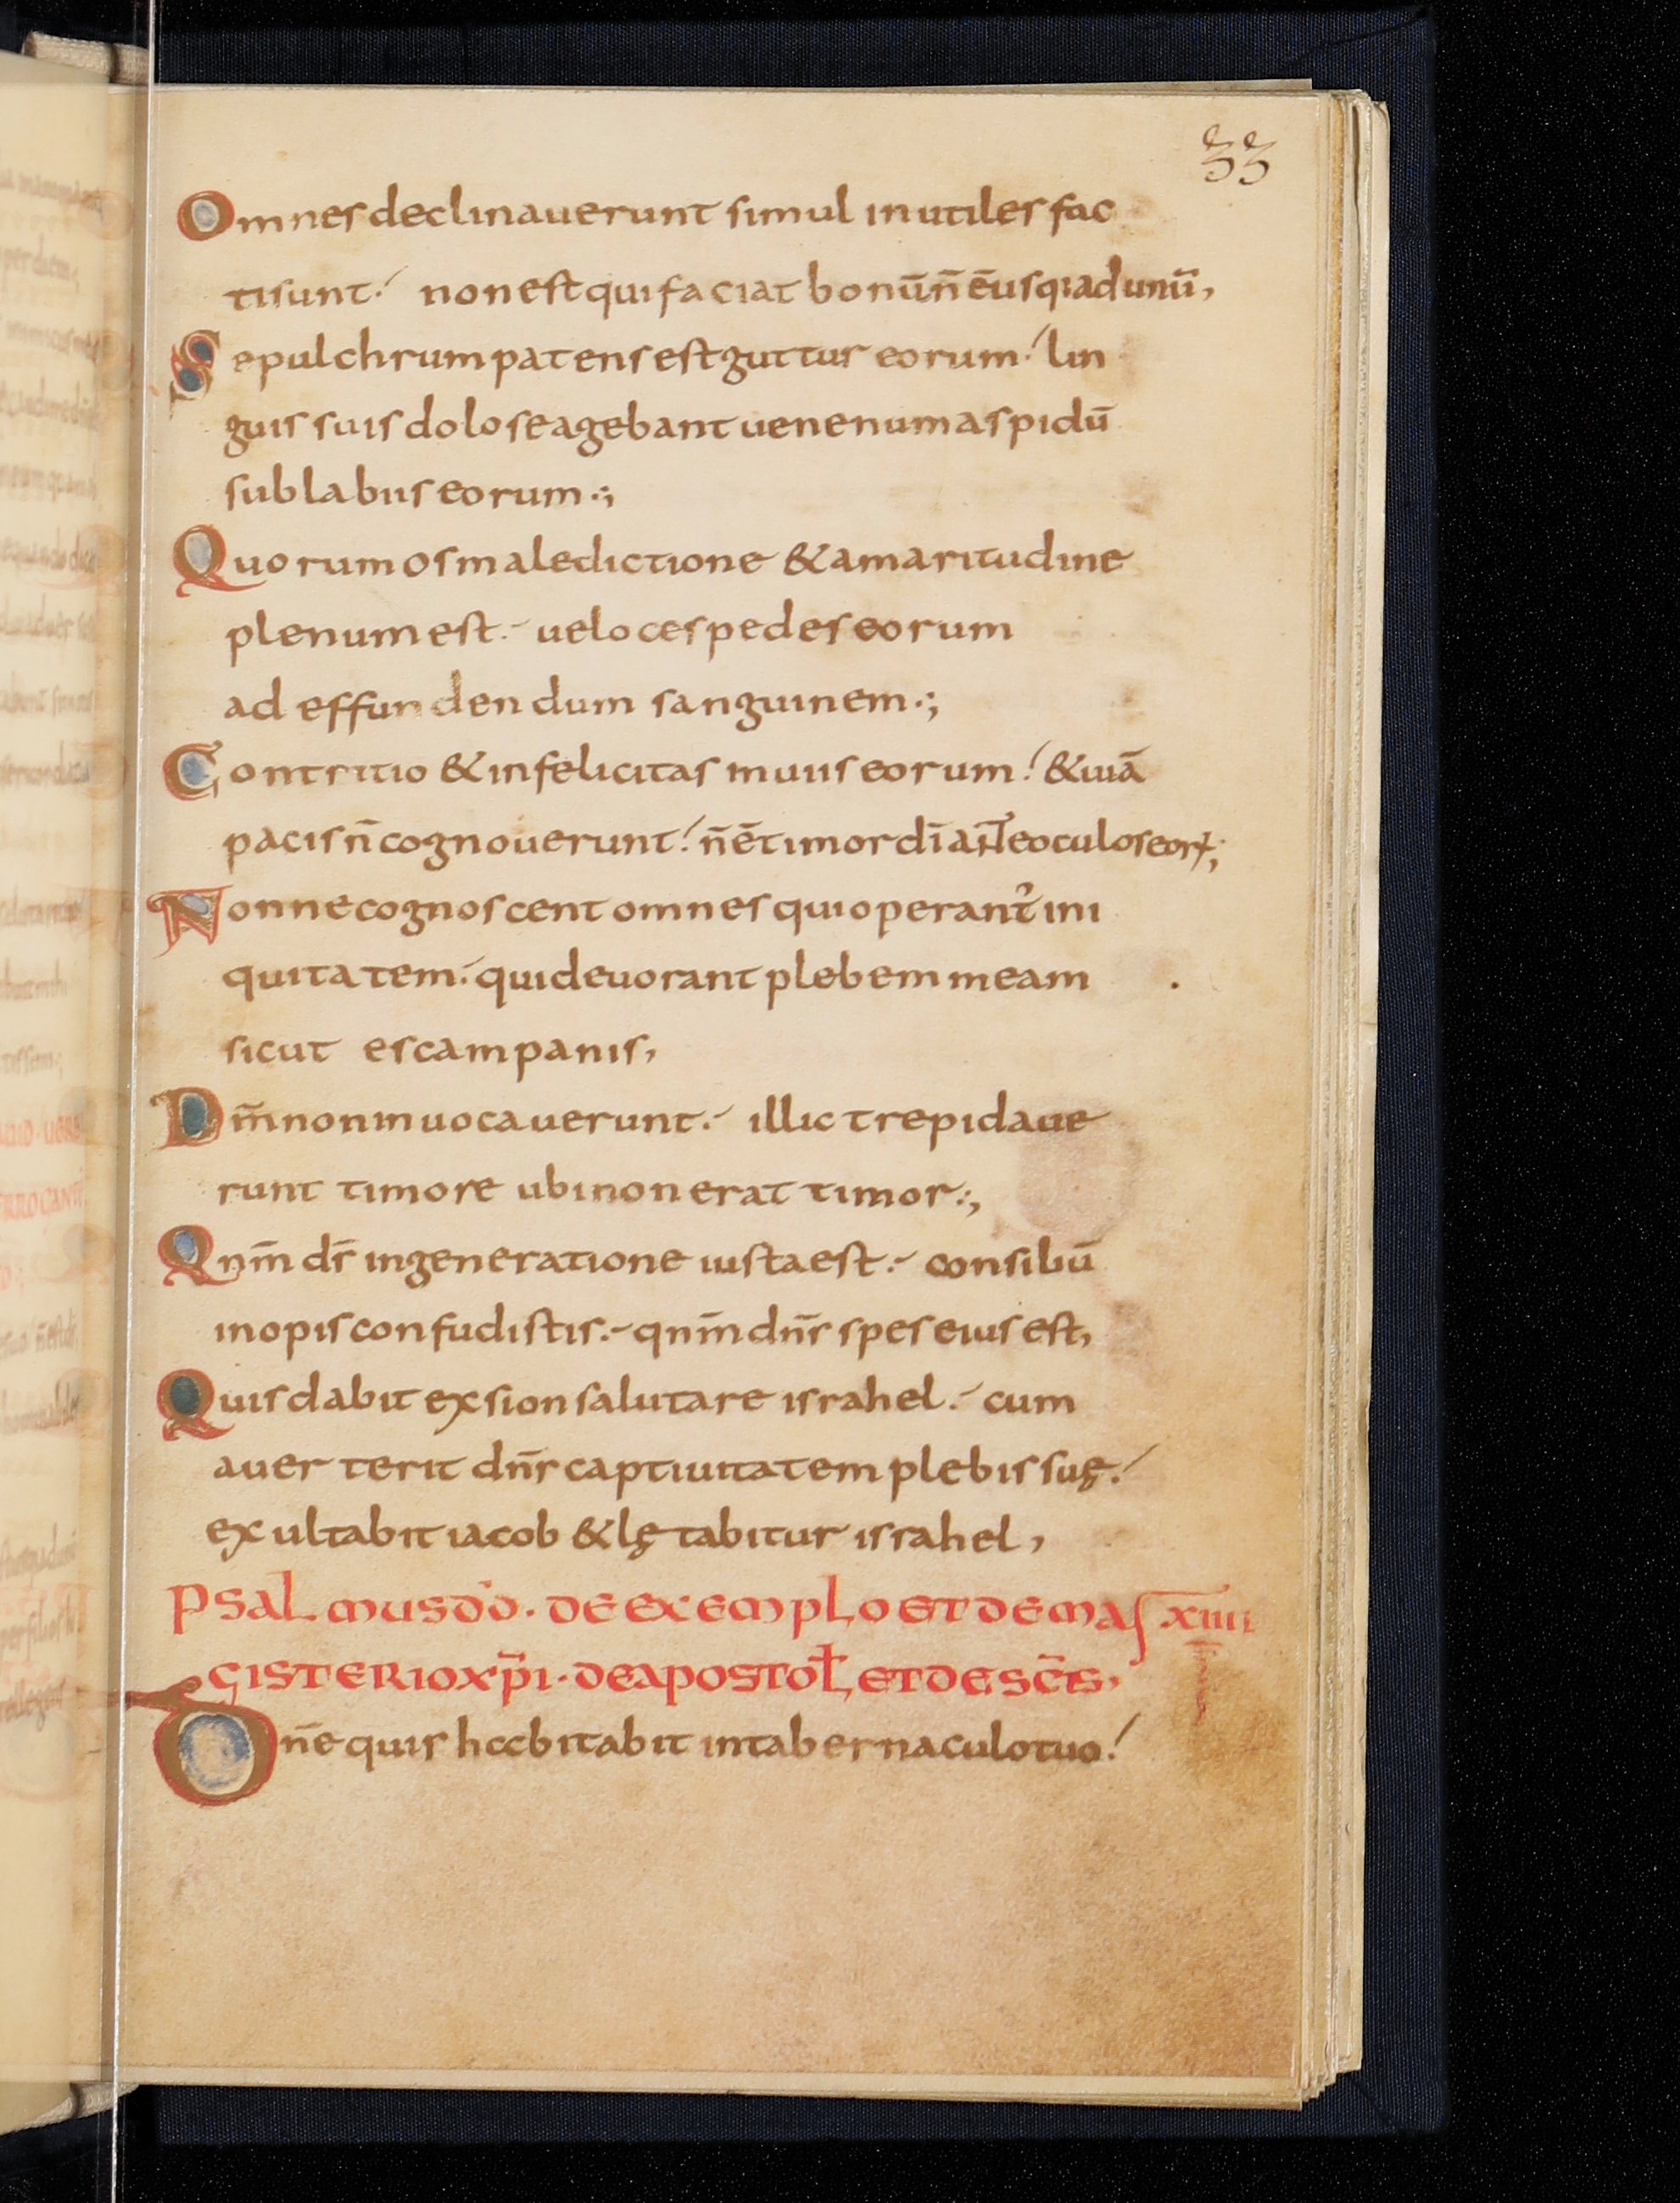 33
Omnes declinauerunt simul inutiles fac
ti sunt non est qui faciat bonū n̄ ē usq; ad unū,
Sepulchrum patens est guttur eorum lin
guis suis dolose agebant uenenum aspidū
sub labiis eorum.;
Quorum os maledictione & amaritudine
plenum est. ueloces pedes eorum
ad effundendum sanguinem.;
Contritio & infelicitas in uiis eorum & uiā
pacis n̄ cognouerunt n̄ ē timor dī ante oculos eorꝝ;
Nonne cognoscent omnes qui operant᷑ ini
quitatem qui deuorant plebem meam
sicut escam panis,
Dn̄m non inuocauerunt. illic trepidaue
runt timore ubi non erat timor.;
Qnm̄ dr̄ in generatione iusta est. consiliū
inopis confudistis. qnm̄ dn̄s spes eius est,
Quis dabit ex sion salutare israhel. cum
auerterit dn̄s captiuitatem plebis suę.
exultabit iacob & lętabitur israhel,
Psalmus dd. de exemplo et de ma xiiii
gisterio xp̄i. de apostol et de sc̄is,
Dn̄e quis habitabit in tabernaculo tuo